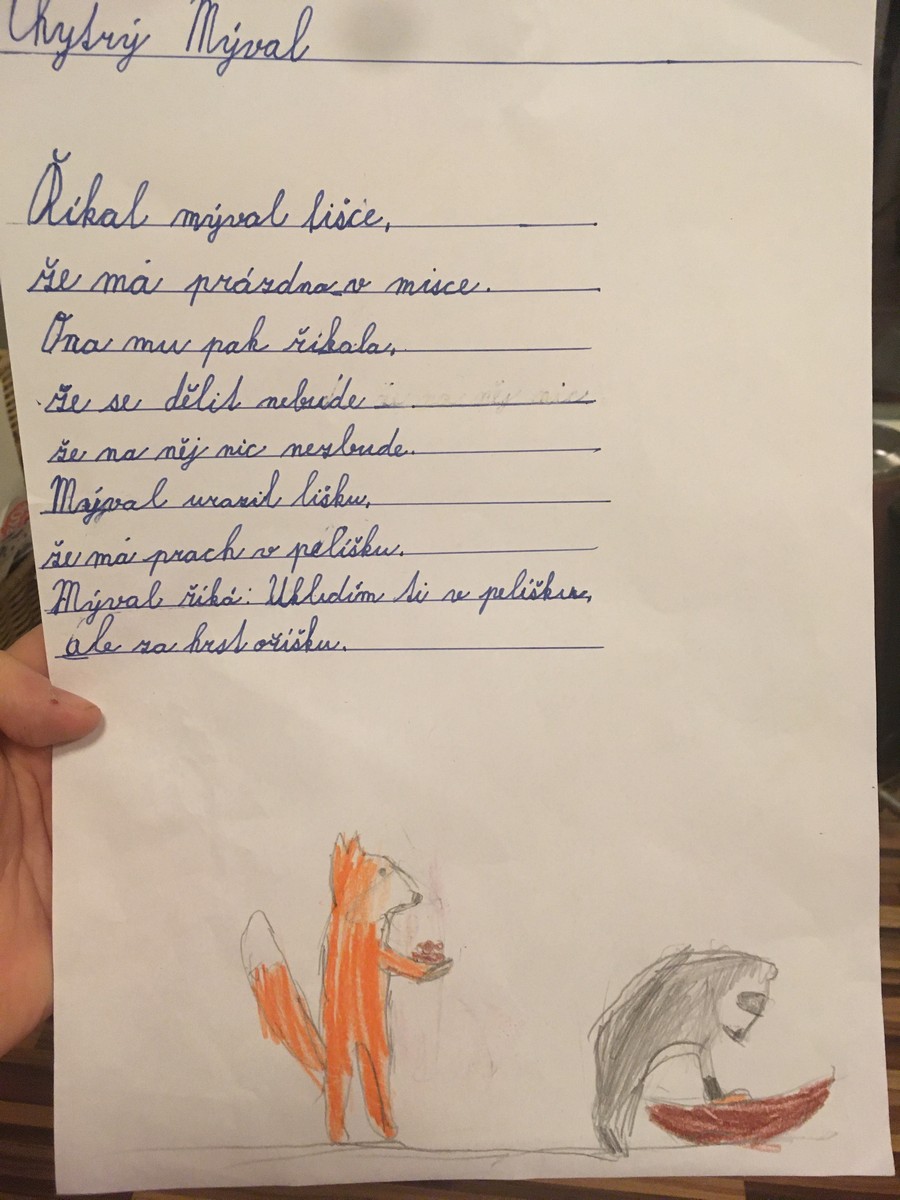 Chytrý Mýval
Říkal mýval lišce,
že má prázdno v misce.
Ona mu pak říkala,
že se dělit nebude
že na něj nic nezbude.
Mýval urazil lišku,
že má prach v pelíšku.
Mýval říká: Uklidím ti v pelíšku,
ale za hrst oříšku.